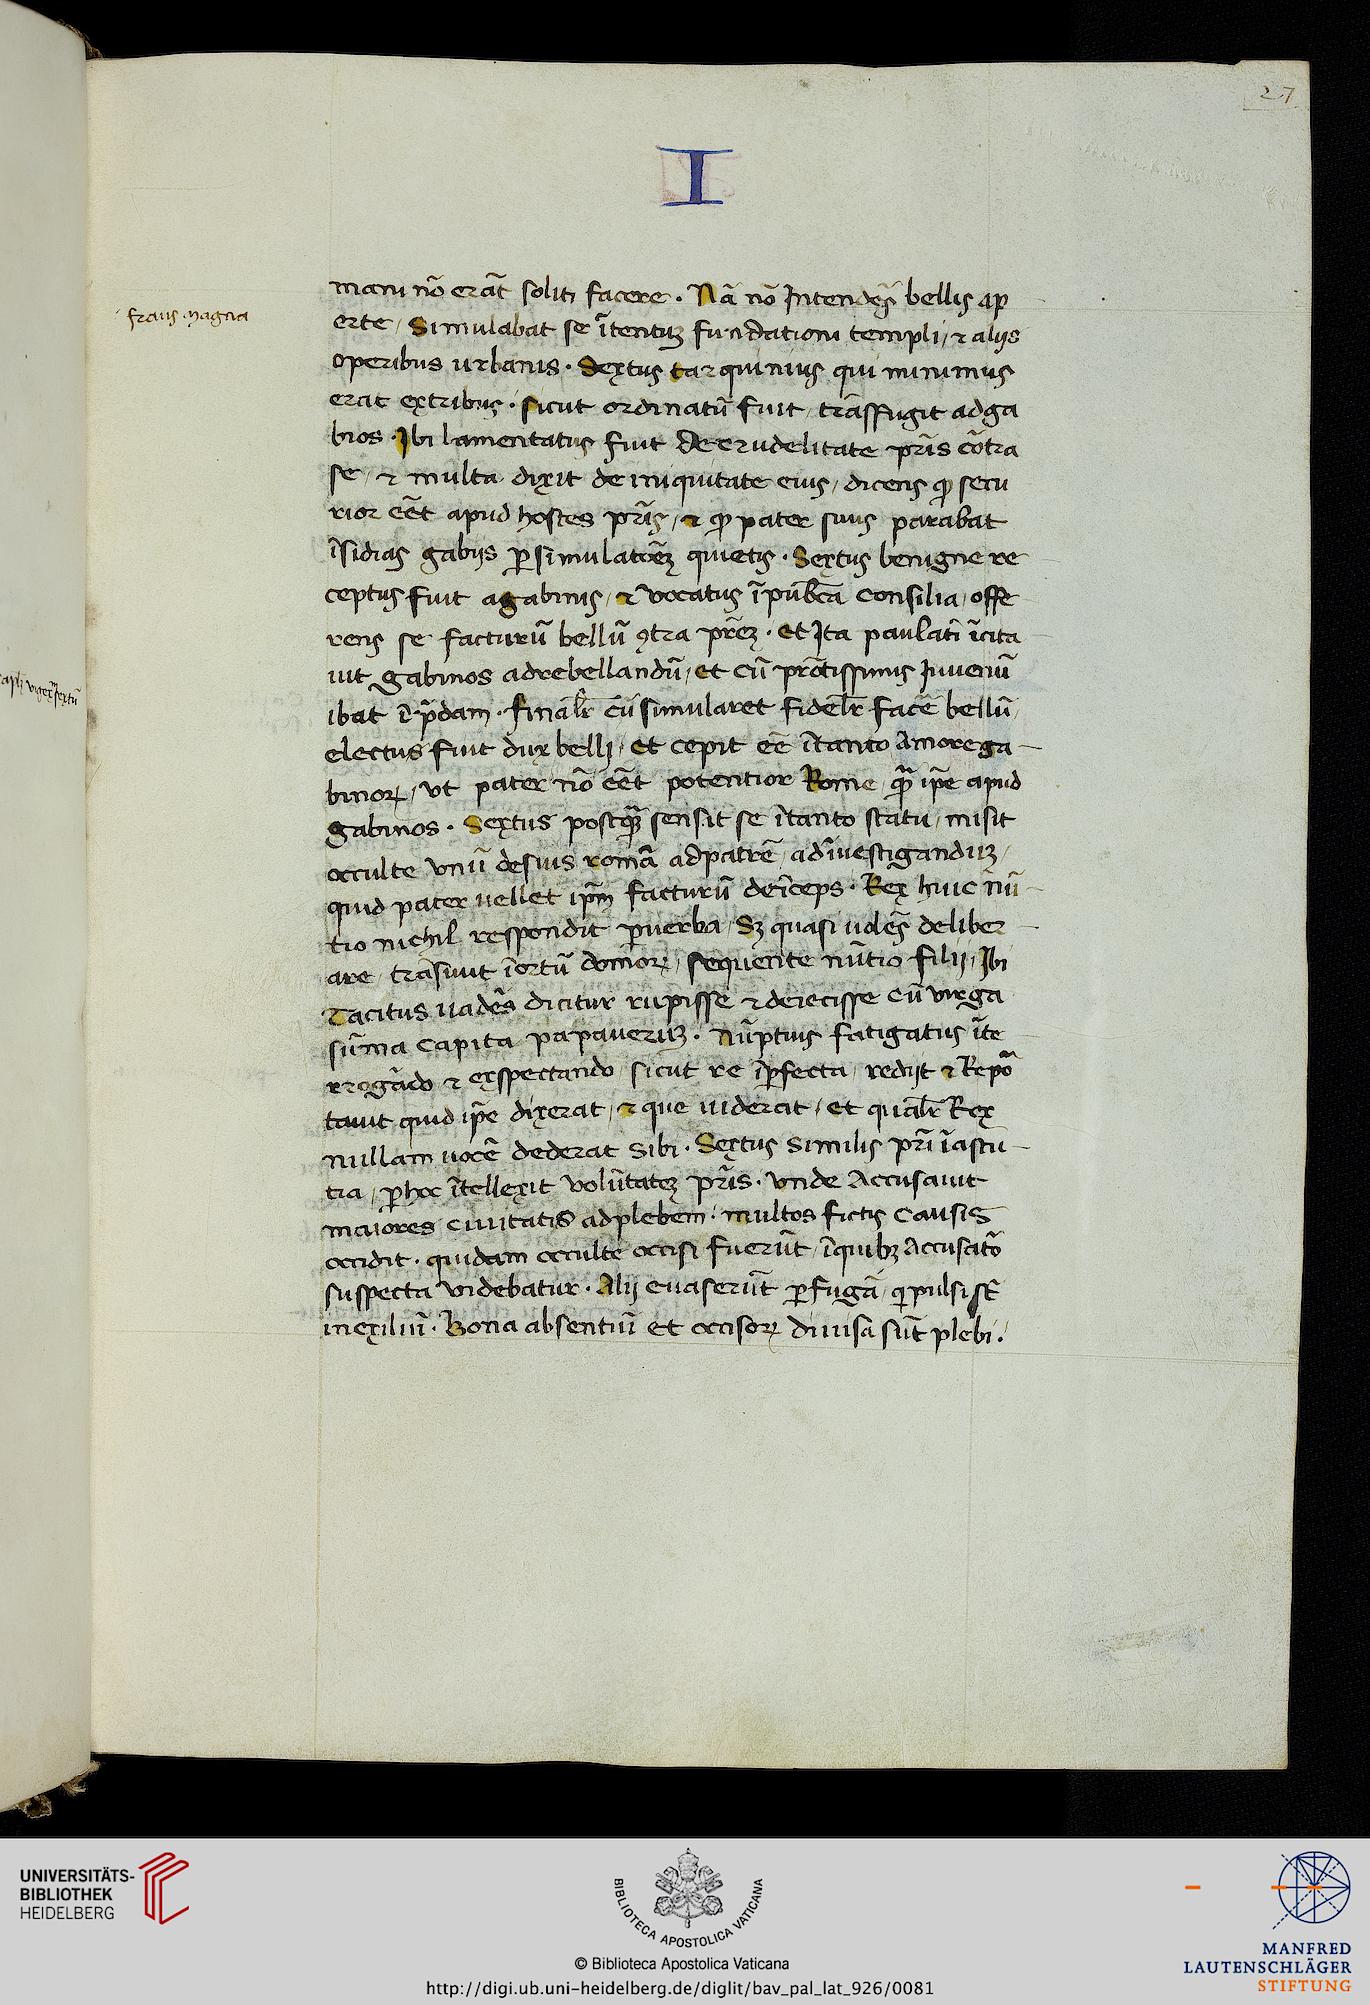 27
I
fraus magna
mani nō erāt soliti facere . Nā nō Intendēs bellis ap
erte / Simulabat se ītentuȝ fundationi templi / ⁊ alijs
operibus urbanis . Sextus tarquinius qui minimus
erat extribus . sicut ordinatū fuit / trāsffugit adga
bios . Ibi lamentatus fuit de crudelitate pr̄is cōtra
se / ⁊ multa dixit de iniquitate eius / dicens ꝙ secu
rior eēt apud hostes pr̄is / ⁊ ꝙ pater suus parabat
īsidias gabijs ꝑsimulatōeȝ quietis . Sextus benigne re
ceptus fuit agabinis / ⁊ vocatus īpub̄ca consilia / offe
rens se facturū bellū ꝯtra pr̄eȝ . Et Ita paulatī īcita
uit gabinos adrebellandū / et cū prōtissimis Iuuenū
ibat ī p̄dam . final̄r cū simularet fidel̄r facē bellū /
electus fuit dux belli / et cepit eē ītanto Amorega
binoꝝ / vt pater nō eēt potentior Rome / qᷓ ip̄e apud
gabinos . Sextus postqᷓȝ sensit se ītanto statu / misit
occulte vnū desuis romā adpatrē / adīuestiganduȝ /
quid pater uellet ip̄m facturū deīceps . Rex huic nū
tio nichil respondit ꝑuerba / Sȝ quasi uolēs deliber
are / trāsiuit īortū domoꝝ / sequente nūtio filij / Ibi
Tacitus uadēs dicitur rupisse ⁊ deiecisse cū virga
sūma capita papaueruȝ . Nūptius fatigatus īte
rrogādo ⁊ exspectando / sicut re īꝑfecta / redijt ⁊ Repō
tauit quid ip̄e dixerat / ⁊ que uiderat / et qual̄r Rex
nullam uocē dederat sibi . Sextus similis pr̄i īastu
tia / ꝑhoc ītellexit volūtateȝ pr̄is . vnde Accusauit
maiores ciuitatis adplebem . multos fictis causis
occidit . quidam occulte occisi fuerūt / īquibȝ Accusatō
suspecta videbatur . Alij euaserūt ꝑfugā / qi pulsi st̄
inexiliū . Bona absentiū et occisoꝝ diuisa sūt plebi .
UNIVERSITÄTS-
BIBLIOTHEK
HEIDELBERG
BIBLIOTECA APOSTOLICA VATICANA
© Biblioteca Apostolica Vaticana
http://digi.ub.uni-heidelberg.de/diglit/bav_pal_lat_926/0081
MANFRED
LAUTENSCHLÄGER
STIFTUNG